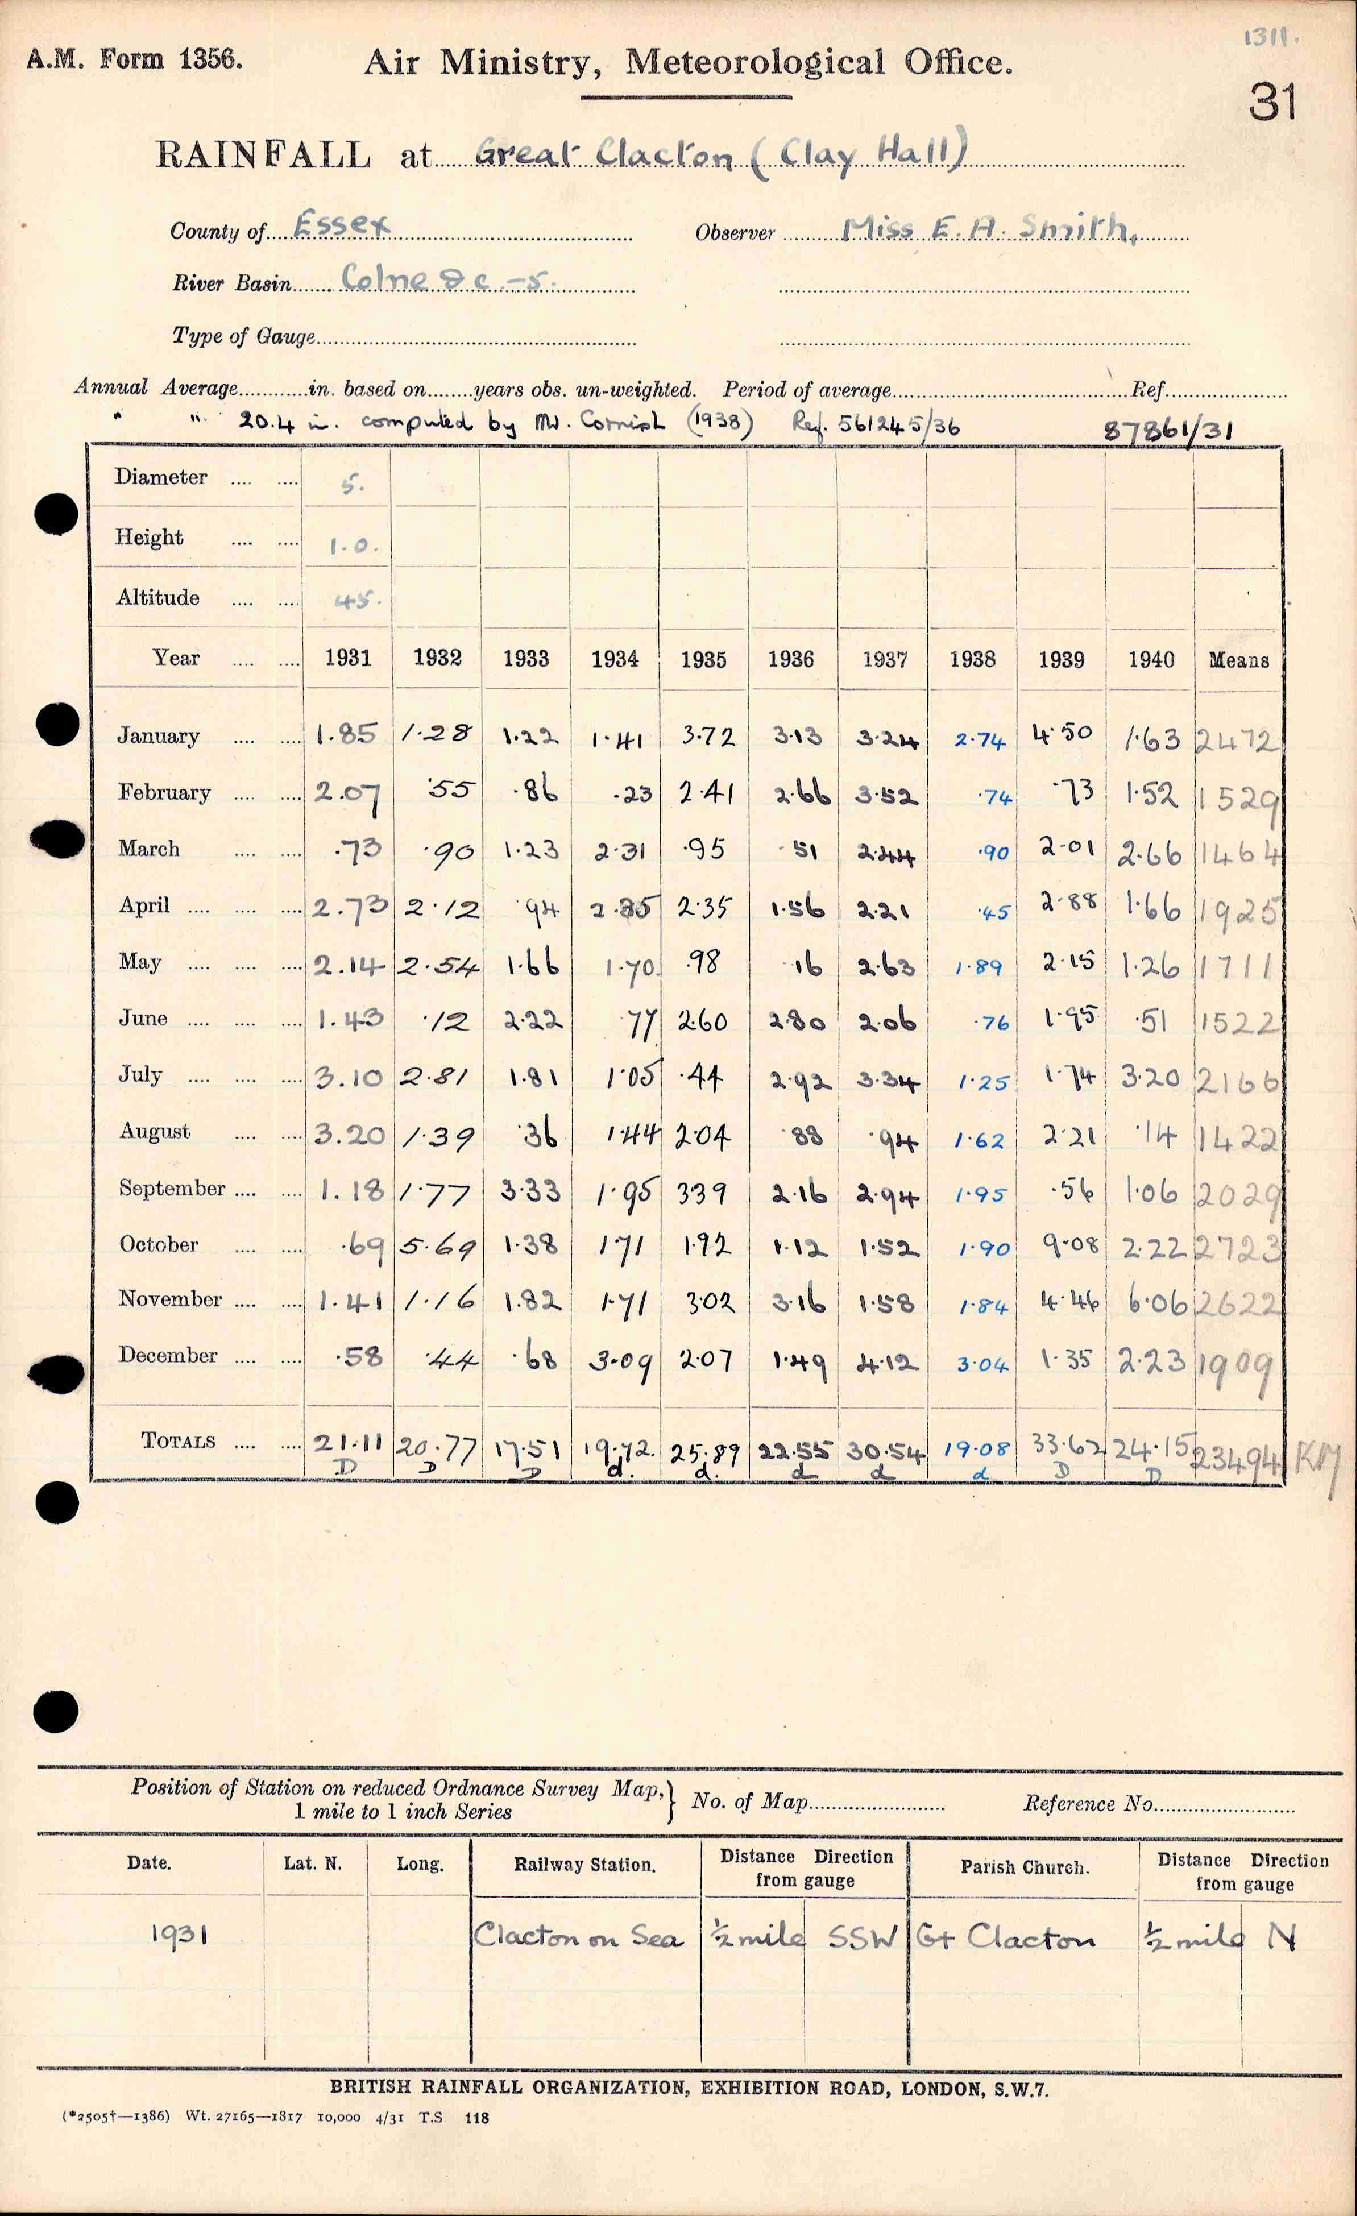 1311.
A.M. Form 1356. Air Ministry, Meteorological Office.
31
RAINFALL at Great Clacton (Clay Hall)
County of Essex Observer Miss E. A. Smith.
River Basin Colne &c. -5.
Type of Gauge
Annual Average in. based on years obs. un-weighted. Period of average Ref.
" " 20.4 in. computed by Mr. Cornish (1938) Ref. 561245/36 87861/31
Diameter 5.
Height 1.0.
Altitude 45.
Year 1931 1932 1933 1934 1935 1936 1937 1938 1939 1940 Means
January 1.85 1.28 1.22 1.41 3.72 3.13 3.24 2.74 4.50 1.63 2472
February 2.07 .55 .86 .23 2.41 2.66 3.52 .74 .73 1.52 1529
March .73 .90 1.23 2.31 .95 .51 2.44 .90 2.01 2.66 1464
April 2.73 2.12 .94 2.35 2.35 1.56 2.21 .45 2.88 1.66 1925
May 2.14 2.54 1.66 1.70 .98 .16 2.63 1.89 2.15 1.26 1711
June 1.43 .12 2.22 .77 2.60 2.80 2.06 .76 1.95 .51 1522
July 3.10 2.81 1.81 1.05 .44 2.92 3.34 1.25 1.74 3.20 2166
August 3.20 1.39 .36 1.44 2.04 .88 .94 1.62 2.21 .14 1422
September 1.18 1.77 3.33 1.95 3.39 2.16 2.94 1.95 .56 1.06 2029
October .69 5.69 1.38 1.71 1.92 1.12 1.52 1.90 9.08 2.22 2723
November 1.41 1.16 1.82 1.71 3.02 3.16 1.58 1.84 4.46 6.06 2622
December .58 .44 .68 3.09 2.07 1.49 4.12 3.04 1.35 2.23 1909
TOTALS 21.11 20.77 17.51 19.72 25.89 22.55 30.54 19.08 33.62 24.15 23494 KM
D D D d. d. d d d D D
Position of Station on reduced Ordnance Survey Map, 1 mile to 1 inch Series } No. of Map Reference No.
Date. Lat. N. Long. Railway Station. Distance Direction from gauge Parish Church. Distance Direction from gauge
1931 Clacton on Sea ½ mile SSW Gt Clacton ½ mile N
BRITISH RAINFALL ORGANIZATION, EXHIBITION ROAD, LONDON, S.W.7.
(*2505†—1386) Wt. 27165—1817 10,000 4/31 T.S 118